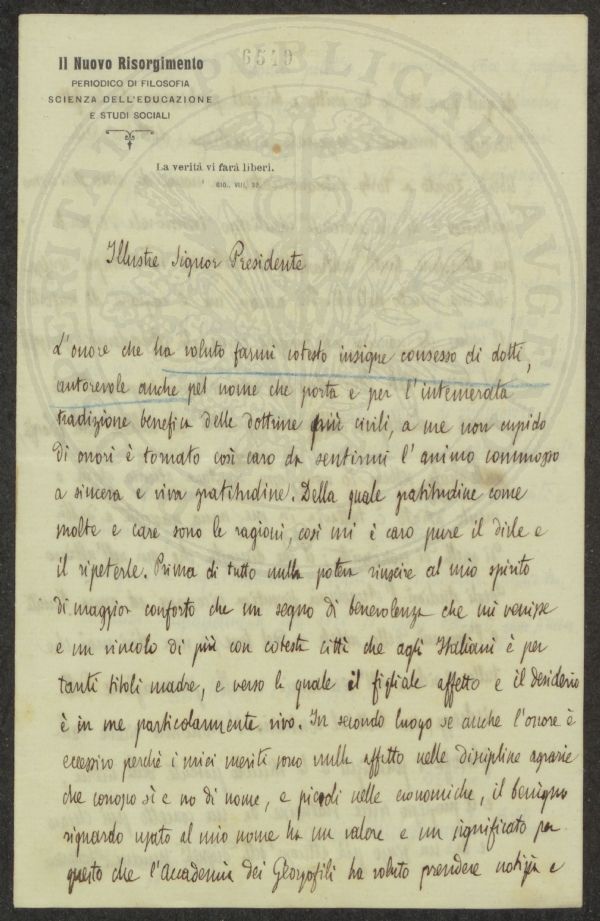 6519
Il Nuovo Risorgimento
PERIODICO DI FILOSOFIA
SCIENZA DELL'EDUCAZIONE
E STUDI SOCIALI
La verità vi farà liberi.
GIO., VIII, 32.
Illustre Signor Presidente
L'onore che ha voluto farmi cotesto insigne consesso di dotti,
autorevole anche pel nome che porta e per l'intemerata
tradizione benefica delle dottrine più civili, a me non cupido
di onori è tornato così caro da sentirmi l'animo commosso
a sincera e viva gratitudine. Della quale gratitudine come
molte e care sono le ragioni, così mi è caro pure il dirle e
il ripeterle. Prima di tutto nulla potea riuscire al mio spirito
di maggior conforto che un segno di benevolenza che mi venisse
e un vincolo di più con cotesta città che agli Italiani è per
tanti titoli madre, e verso la quale il figliale affetto e il desiderio
è in me particolarmente vivo. In secondo luogo se anche l'onore è
eccessivo perchè i miei meriti sono nulli affatto nelle discipline agrarie
che conosco sì e no di nome, e piccoli nelle economiche, il benigno
riguardo usato al mio nome ha un valore e un significato per
questo che l'Accademia dei Georgofili ha voluto prendere notizia e